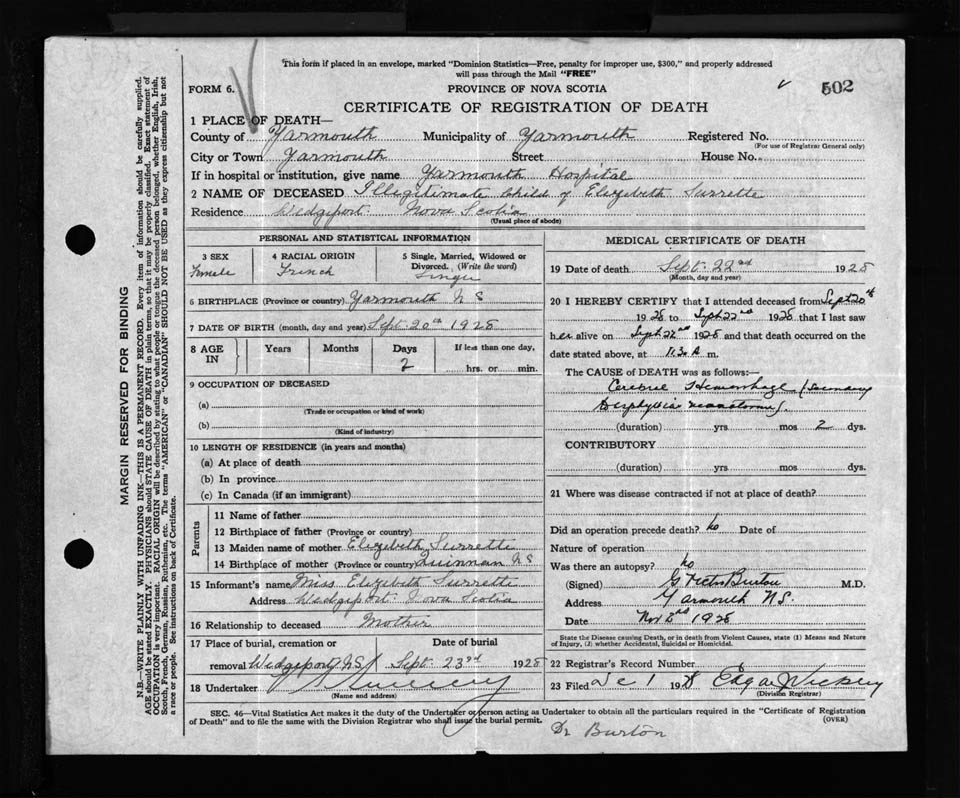 This form if placed in an envelope, marked "Dominion Statistics—Free, penalty for improper use, $300," and properly addressed
will pass through the Mail "FREE"
FORM 6. PROVINCE OF NOVA SCOTIA 502
CERTIFICATE OF REGISTRATION OF DEATH
1 PLACE OF DEATH—
County of Yarmouth Municipality of Yarmouth Registered No.
(For use of Registrar General only)
City or Town Yarmouth Street House No.
If in hospital or institution, give name Yarmouth Hospital
2 NAME OF DECEASED Illegitimate Child of Elizabeth Surrette
Residence Wedgeport Nova Scotia
(Usual place of abode)
PERSONAL AND STATISTICAL INFORMATION
3 SEX 4 RACIAL ORIGIN 5 Single, Married, Widowed or
Divorced. (Write the word)
Female French Single
6 BIRTHPLACE (Province or country) Yarmouth N S
7 DATE OF BIRTH (month, day and year) Sept 20th 1928
8 AGE IN Years Months Days If less than one day,
2 hrs. or min.
9 OCCUPATION OF DECEASED
(a)
(Trade or occupation or kind of work)
(b)
(Kind of industry)
10 LENGTH OF RESIDENCE (in years and months)
(a) At place of death
(b) In province
(c) In Canada (if an immigrant)
Parents
11 Name of father
12 Birthplace of father (Province or country)
13 Maiden name of mother Elizabeth Surrette
14 Birthplace of mother (Province or country) Quinnan N S
15 Informant's name Miss Elizabeth Surrette
Address Wedgeport Nova Scotia
16 Relationship to deceased Mother
17 Place of burial, cremation or Date of burial
removal Wedgeport N.S. Sept. 23rd 1928
18 Undertaker
(Name and address)
MEDICAL CERTIFICATE OF DEATH
19 Date of death Sept. 22nd 1928
(Month, day and year)
20 I HEREBY CERTIFY that I attended deceased from Sept 20th
1928 to Sept 22nd 1928 that I last saw
her alive on Sept 22nd 1928 and that death occurred on the
date stated above, at 11.30 A m.
The CAUSE OF DEATH was as follows:
Cerebral Hemorrhage
(duration) yrs mos 2 dys.
CONTRIBUTORY
(duration) yrs mos dys.
21 Where was disease contracted if not at place of death?
Did an operation precede death? No Date of
Nature of operation
Was there an autopsy? No
(Signed) Burton M.D.
Address Yarmouth N.S.
Date Nov 1928
State the Disease causing Death, or in death from Violent Causes, state (1) Means and Nature
of Injury, (2) whether Accidental, Suicidal or Homicidal.
22 Registrar's Record Number
23 Filed Dec 1 1928 Edgar
(Division Registrar)
SEC. 46—Vital Statistics Act makes it the duty of the Undertaker or person acting as Undertaker to obtain all the particulars required in the "Certificate of Registration
of Death" and to file the same with the Division Registrar who shall issue the burial permit. (OVER)
Dr Burton
MARGIN RESERVED FOR BINDING
N.B.—WRITE PLAINLY WITH UNFADING INK—THIS IS A PERMANENT RECORD. Every item of information should be carefully supplied.
AGE should be stated EXACTLY. PHYSICIANS should STATE CAUSE OF DEATH in plain terms, so that it may be properly classified. Exact statement of
OCCUPATION is very important. RACIAL ORIGIN will be described by stating to what people or tongue the deceased person belonged, whether English, Irish,
Scotch, French, German, Russian, Ruthenian, etc. The terms "AMERICAN" or "CANADIAN" SHOULD NOT BE USED as they express citizenship but not
a race or people. See instructions on back of Certificate.